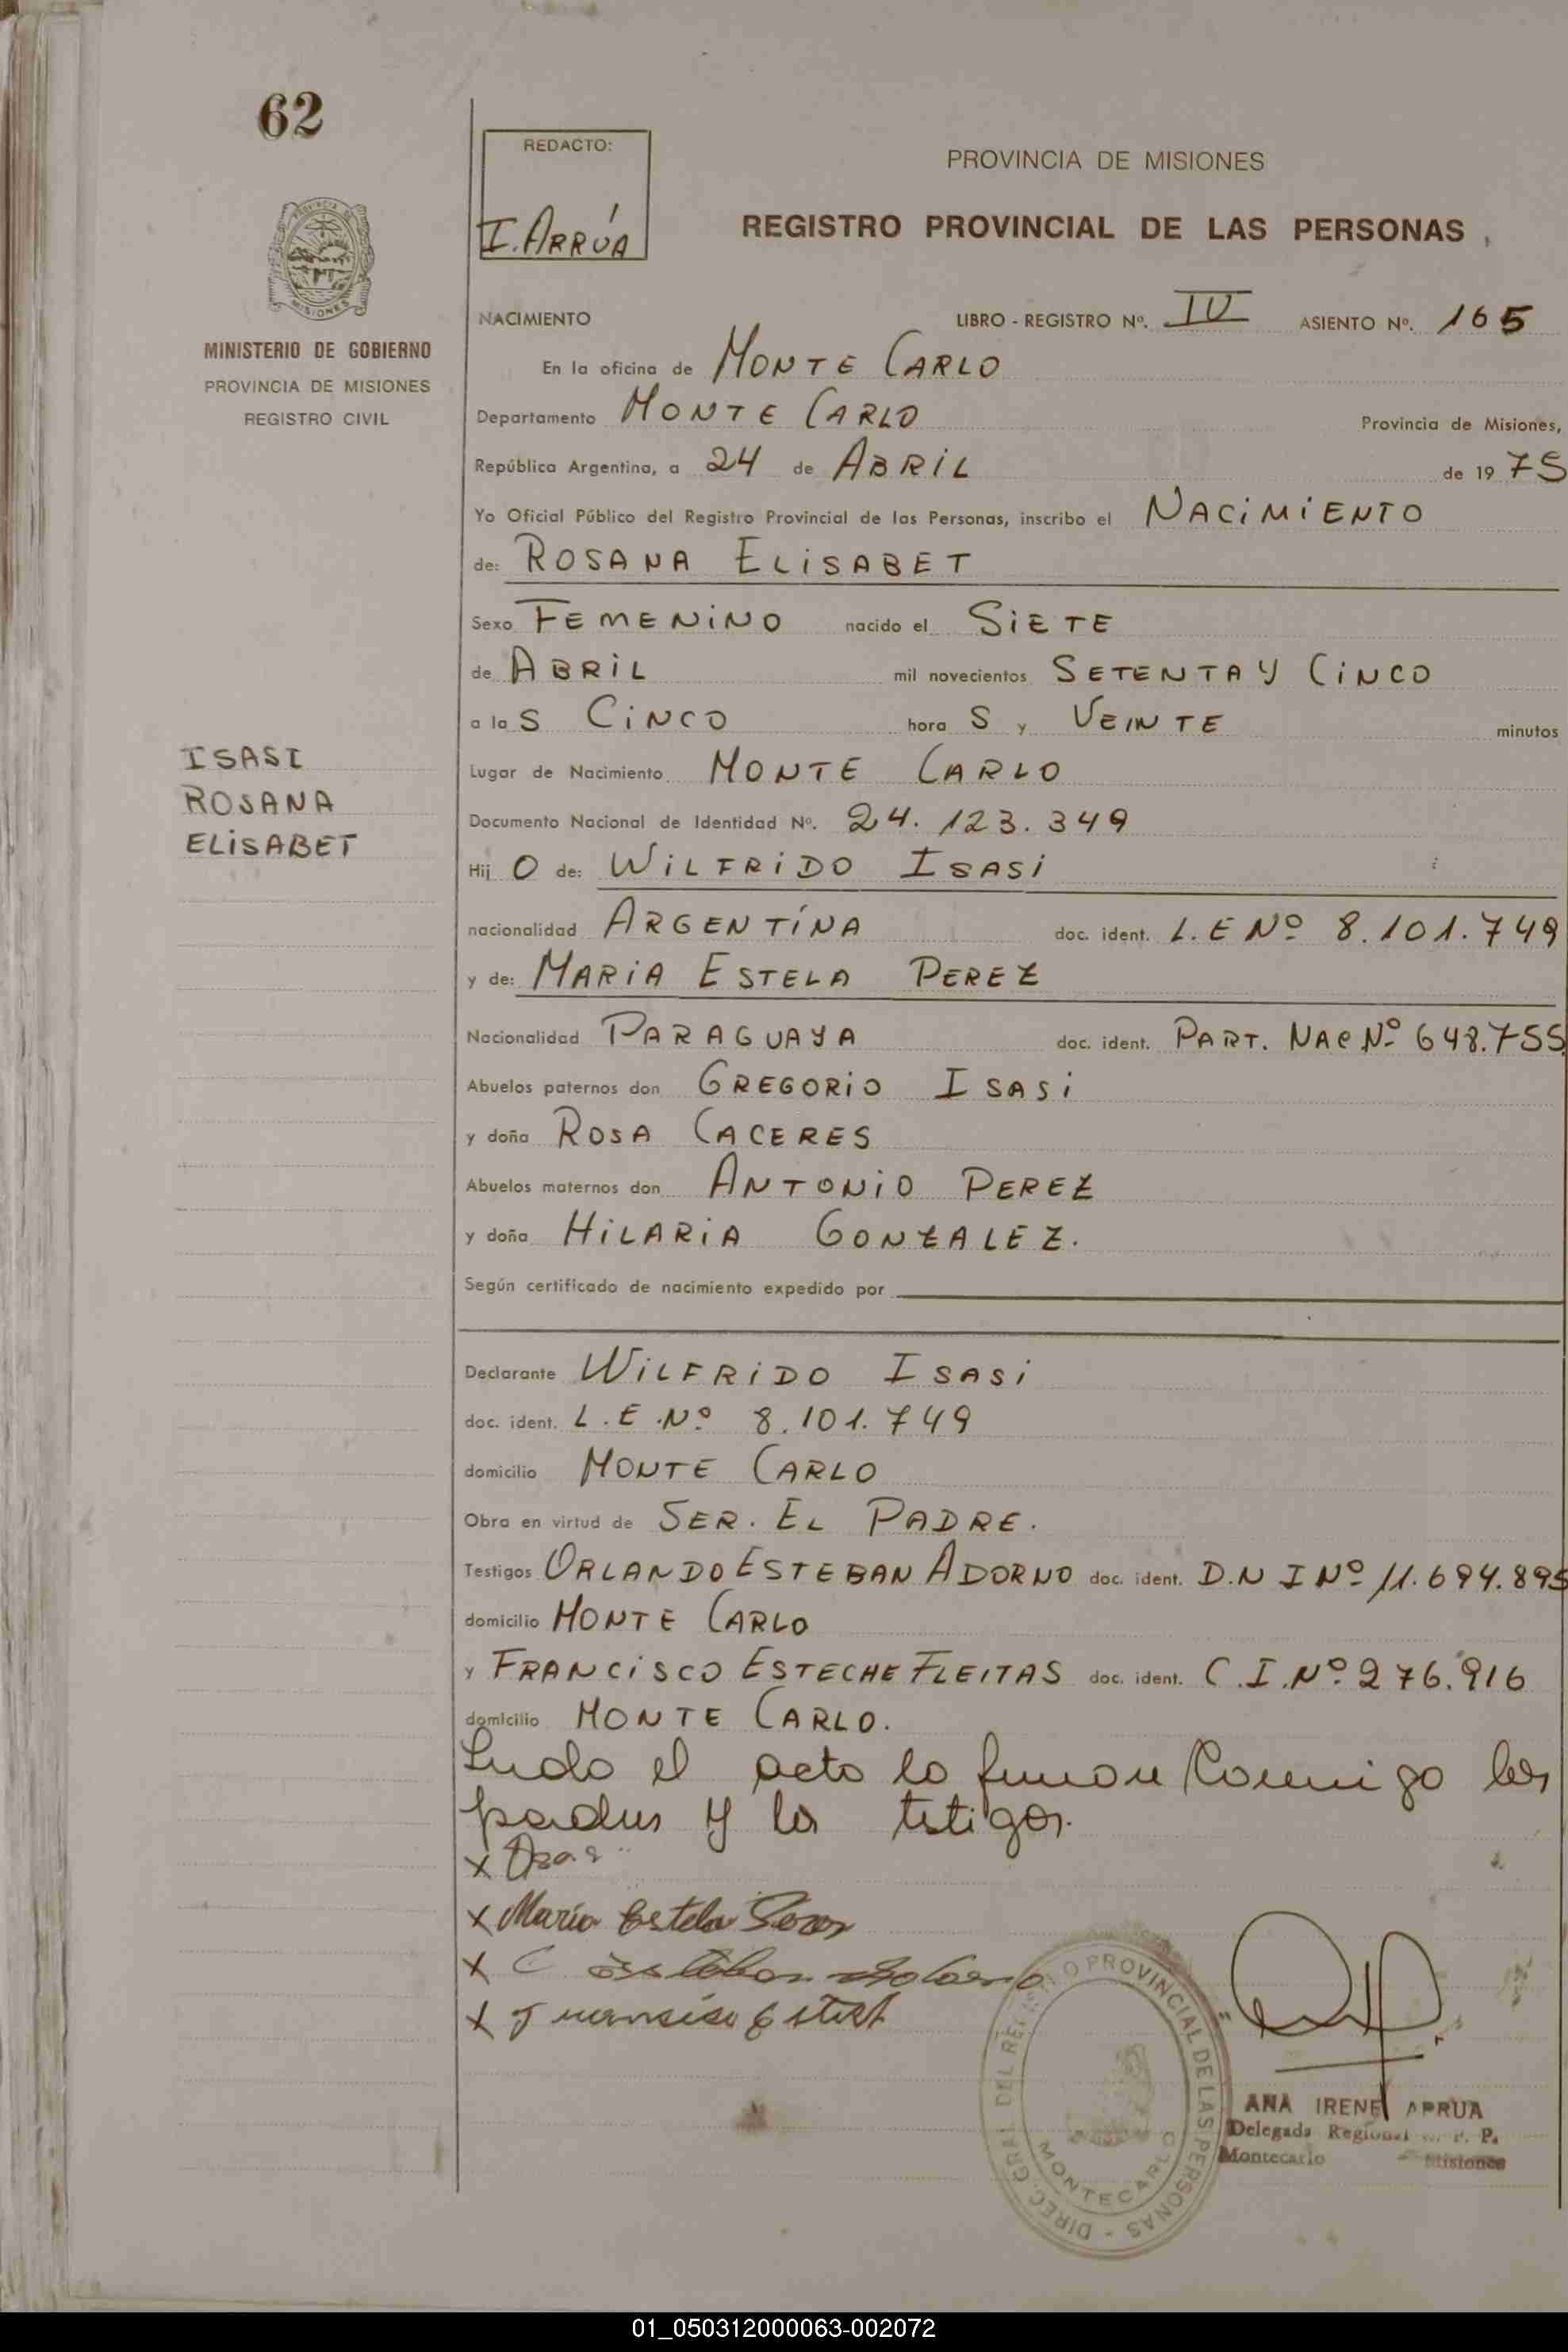 62
REDACTO:
I. ARRÚA
PROVINCIA DE MISIONES
REGISTRO PROVINCIAL DE LAS PERSONAS
PROVINCIA DE
MISIONES
MINISTERIO DE GOBIERNO
PROVINCIA DE MISIONES
REGISTRO CIVIL
NACIMIENTO LIBRO - REGISTRO Nº. IV ASIENTO Nº. 165
En la oficina de MONTE CARLO
Departamento MONTE CARLO Provincia de Misiones,
República Argentina, a 24 de ABRIL de 1975
Yo Oficial Público del Registro Provincial de las Personas, inscribo el NACIMIENTO
de: ROSANA ELISABET
Sexo FEMENINO nacido el SIETE
de ABRIL mil novecientos SETENTA Y CINCO
a las CINCO horas y VEINTE minutos
ISASI
ROSANA
ELISABET
Lugar de Nacimiento MONTE CARLO
Documento Nacional de Identidad Nº. 24.123.349
Hijo de: WILFRIDO ISASI
nacionalidad ARGENTÍNA doc. ident. L.E Nº 8.101.749
y de: MARIA ESTELA PEREZ
Nacionalidad PARAGUAYA doc. ident. PART. NAC Nº 648.755
Abuelos paternos don GREGORIO ISASI
y doña ROSA CACERES
Abuelos maternos don ANTONIO PEREZ
y doña HILARIA GONZALEZ.
Según certificado de nacimiento expedido por
Declarante WILFRIDO ISASI
doc. ident. L.E.Nº 8.101.749
domicilio MONTE CARLO
Obra en virtud de SER. EL PADRE.
Testigos ORLANDO ESTEBAN ADORNO doc. ident. D.N I Nº 11.694.895
domicilio MONTE CARLO
y FRANCISCO ESTECHE FLEITAS doc. ident. C.I.Nº 276.916
domicilio MONTE CARLO.
Leído el acto lo firman conmigo los
padres y los testigos.
x
x María Estela Perez
x Esteban Adorno
x Francisco Estech
DIREC. GRAL. DEL REGISTRO PROVINCIAL DE LAS PERSONAS -
MONTECARLO
ANA IRENE ARRUA
Delegada Regional R. P. P.
Montecarlo Misiones
01_050312000063-002072